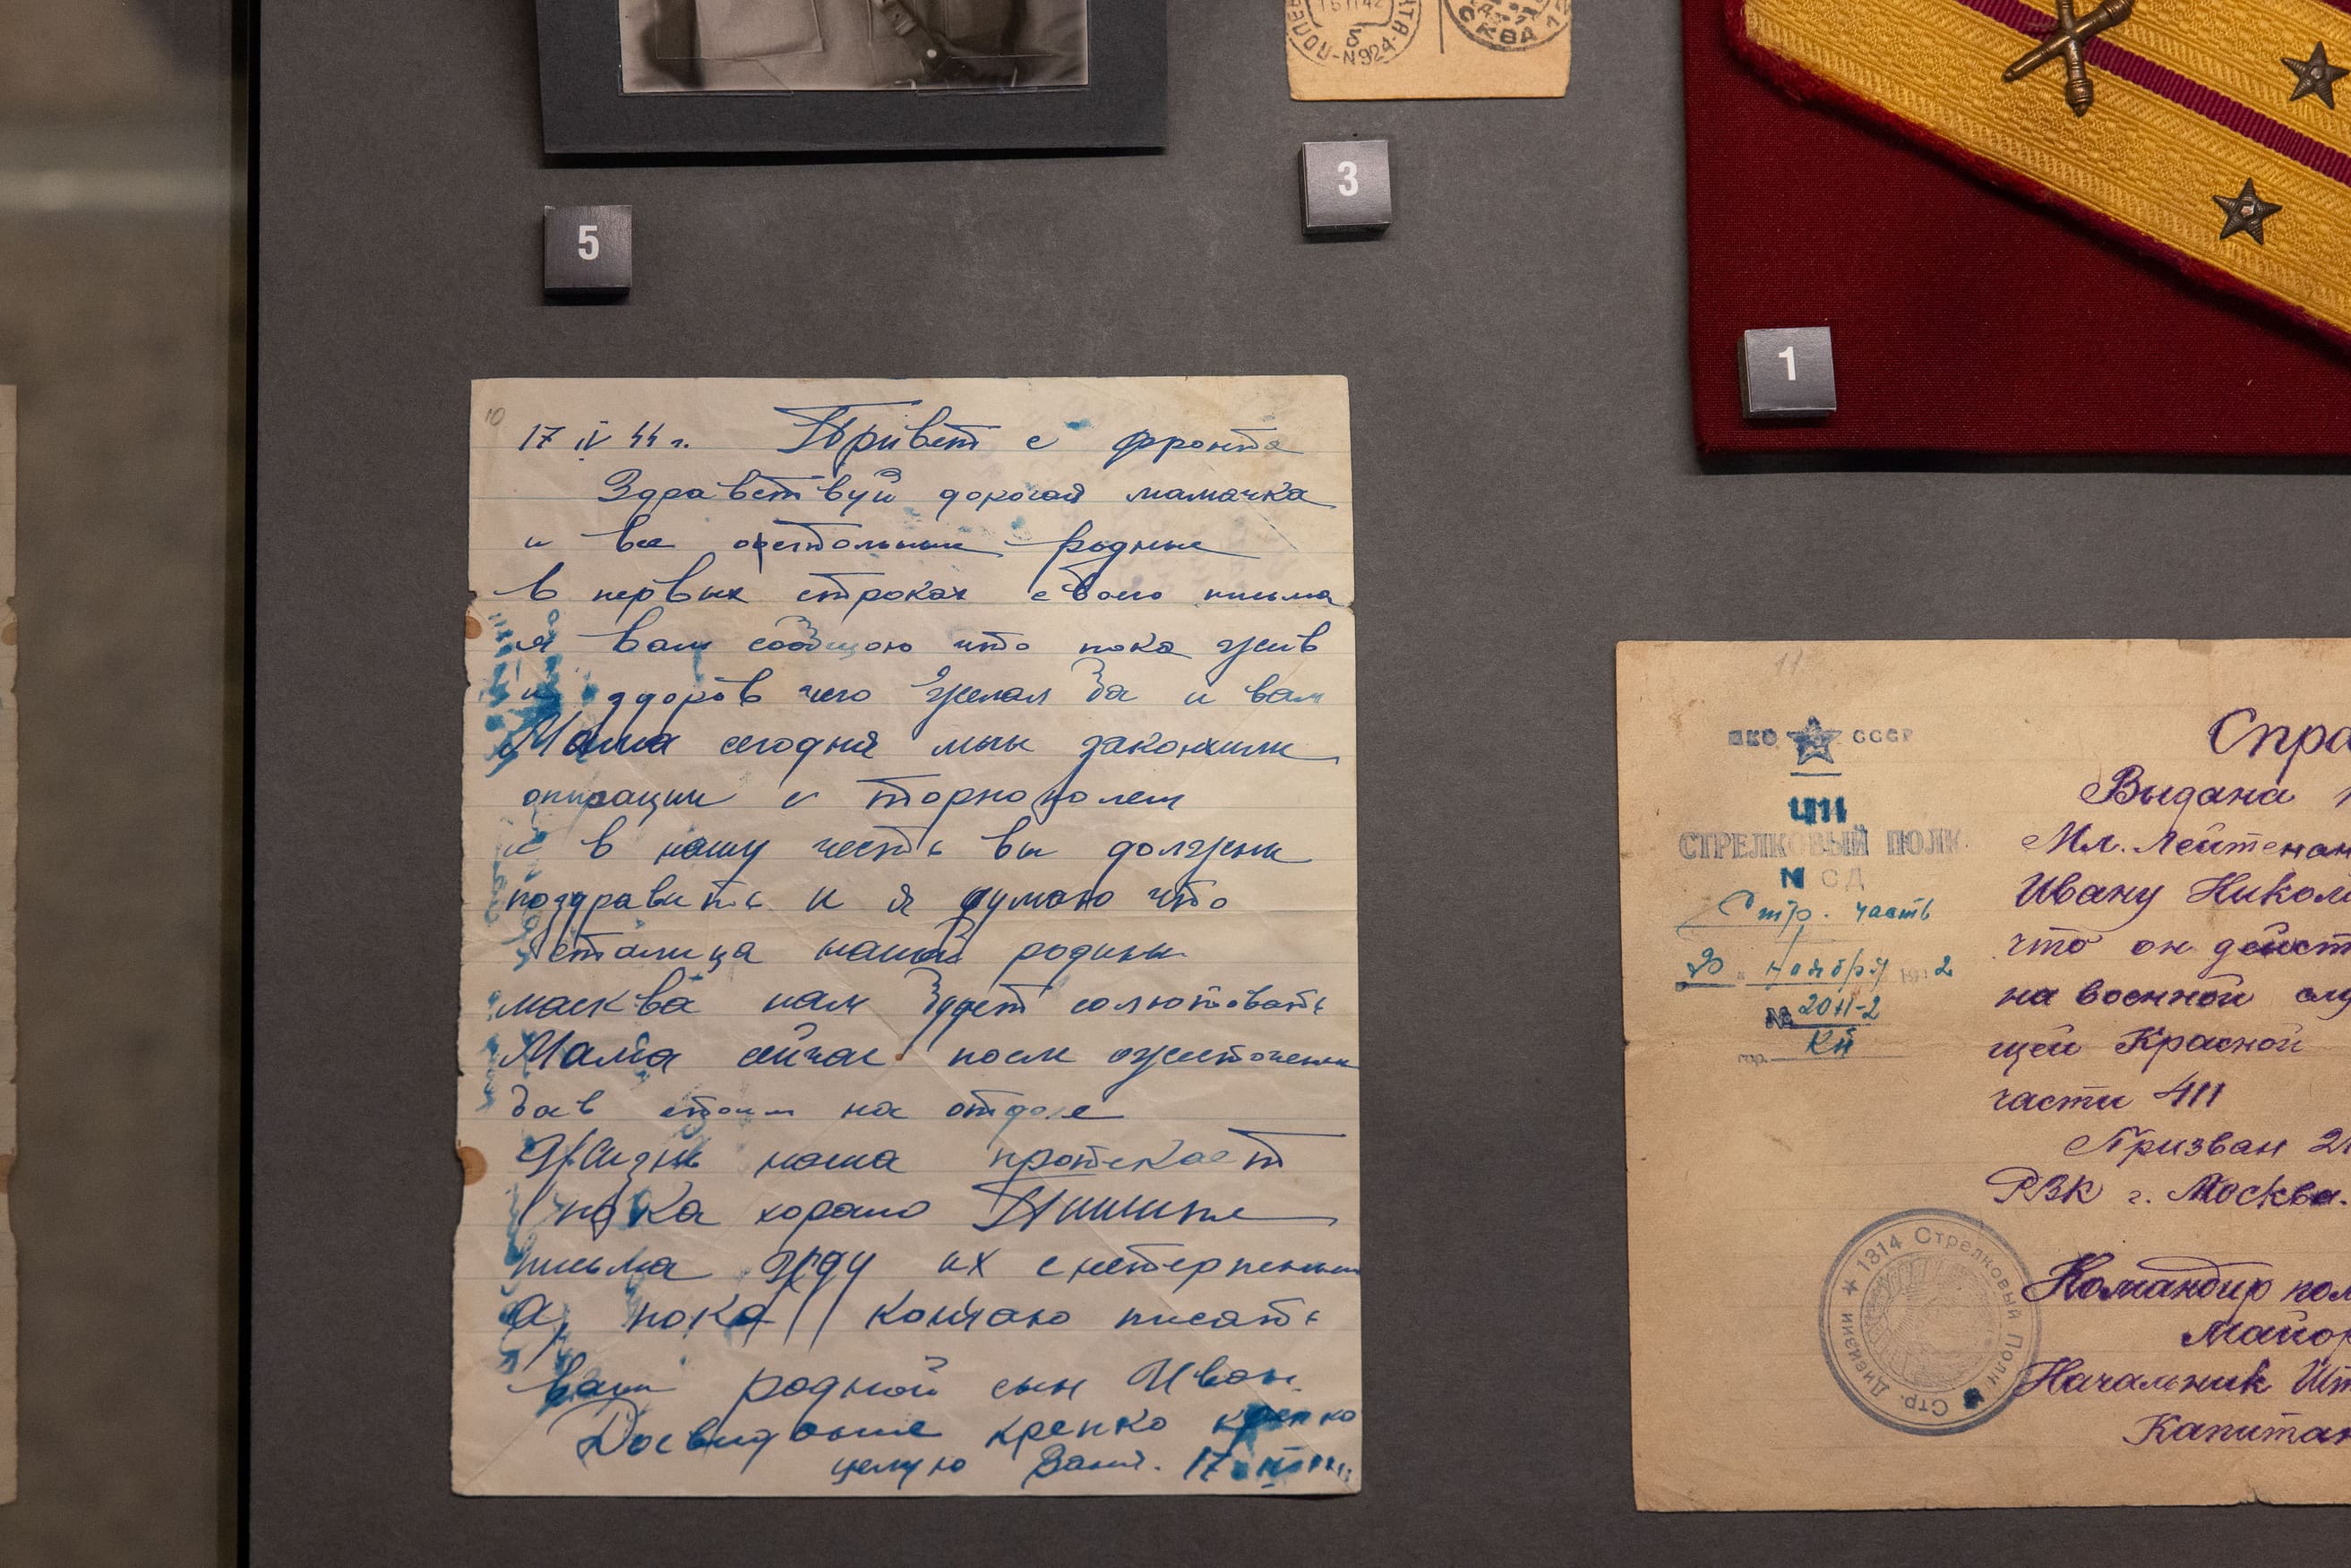 5
3
1
N924
СКВА
10
17 IV 44 г. Привет с фронта
Здравствуй дорогая мамачка
и все остольные родные
В первых строках своего письма
я вам сообщаю что пока жив
и здоров чего желал бы и вам
Мама сегодня мы закончили
опирации с торнополем
и в нашу честь вы должны
поздравить и я думаю что
столица нашей родины
масква нам будет солютовать
Мама сейчас после ожесточеных
боёв стоим на отдыхе
Жизнь наша протекает
пока хорашо Пишите
письма жду их с нетерпением
А пока кончаю писать
ваш родной сын Иван.
Досвидание крепко крепко
целую Ваня. 17
11
НКО СССР
411
СТРЕЛКОВЫЙ ПОЛК
СД
Стр. часть
20 ноября 1942
№ 2011-2
гор.
Спра
Выдана
Мл. Лейтенан
Ивану Никол
что он дейст
на военной слу
щей Красной
части 411
Призван 2
РВК г. Москва.
Командир пол
Майор
Начальник Шт
Капитан
1314 Стрелковый Полк Стр. Дивизии